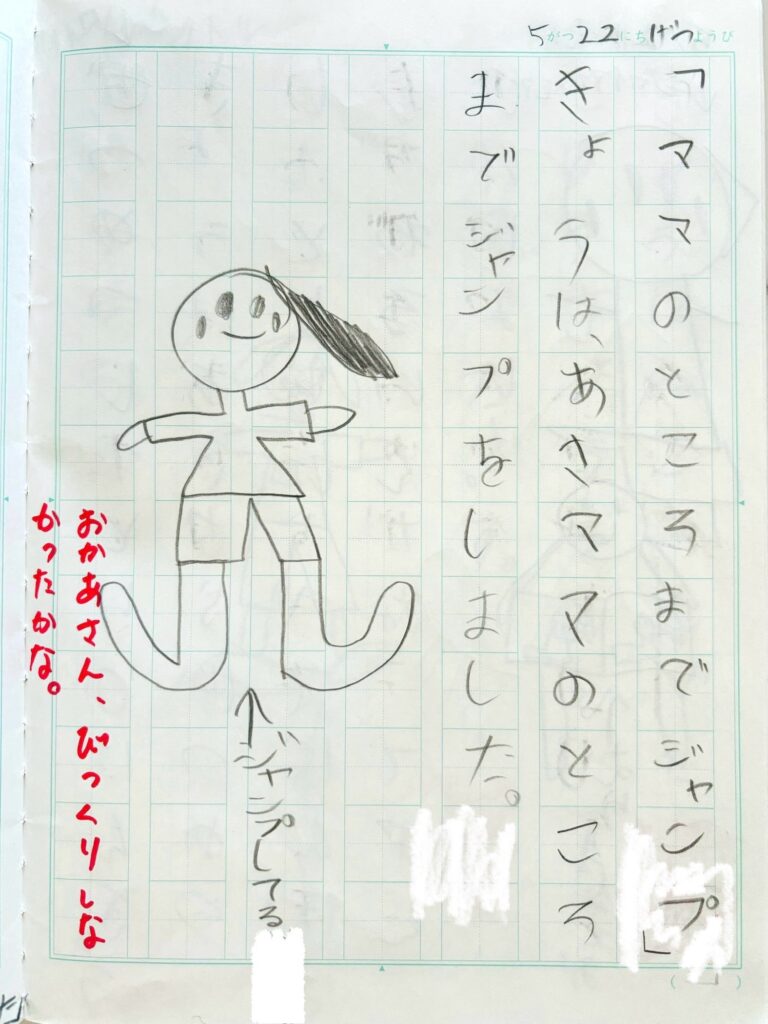 5がつ22にちげつようび
「ママのところまでジャンプ」
きょうは、あさママのところ
までジャンプをしました。
↑ジャンプしてる
おかあさん、びっくりしな
かったかな。